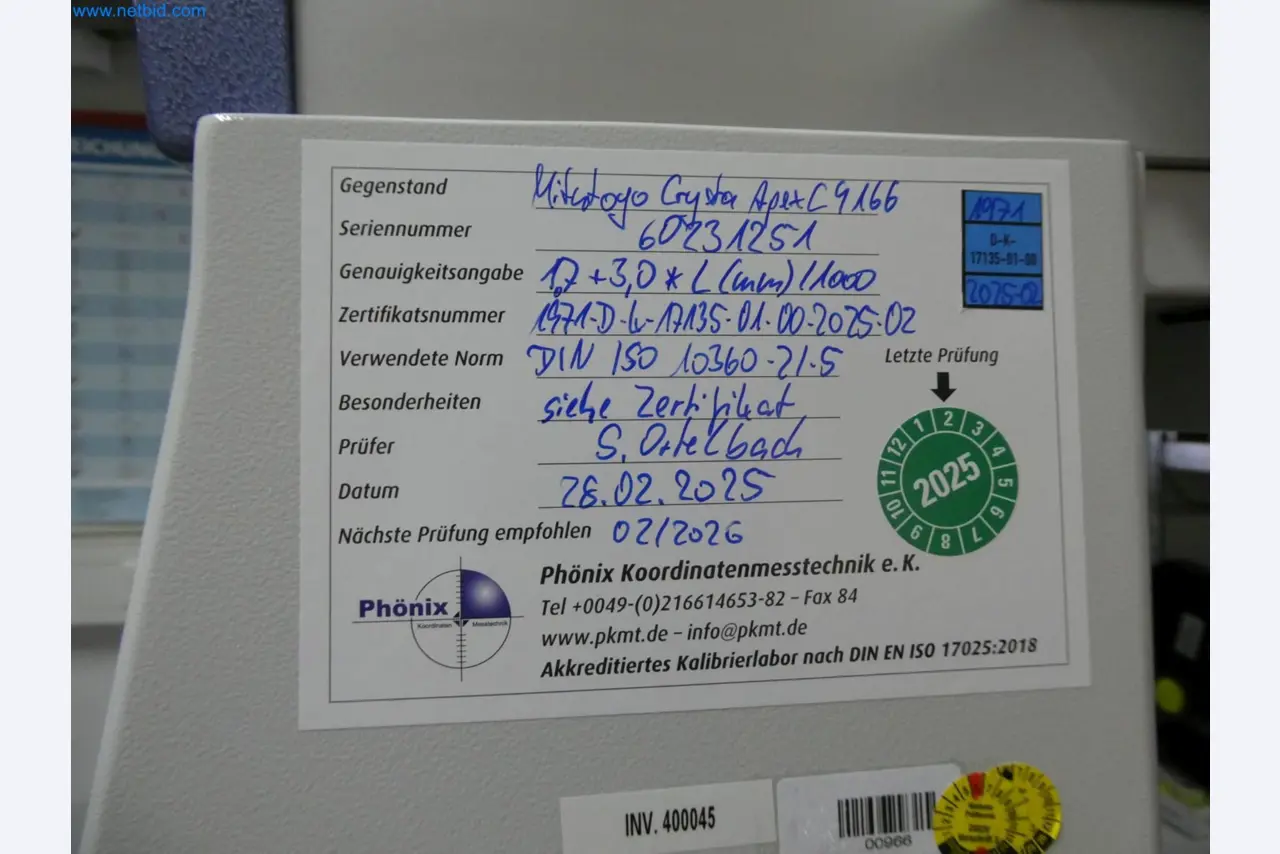 www.netbid.com
Gegenstand Mitutoyo Crysta Apex C 9166
Seriennummer 60231251
Genauigkeitsangabe 1,7 + 3,0 * L (mm) / 1000
Zertifikatsnummer 1971-D-K-17135-01-00-2025-02
Verwendete Norm DIN ISO 10360-2/-5
Besonderheiten siehe Zertifikat
Prüfer S. Ortelbach
Datum 28.02.2025
Nächste Prüfung empfohlen 02/2026
1971
D-K-
17135-01-00
2025-02
Letzte Prüfung
1 2 3 4 5 6 7 8 9 10 11 12
2025
Phönix
Koordinaten Messtechnik
Phönix Koordinatenmesstechnik e. K.
Tel +0049-(0)216614653-82 – Fax 84
www.pkmt.de – info@pkmt.de
Akkreditiertes Kalibrierlabor nach DIN EN ISO 17025:2018
INV. 400045
00966